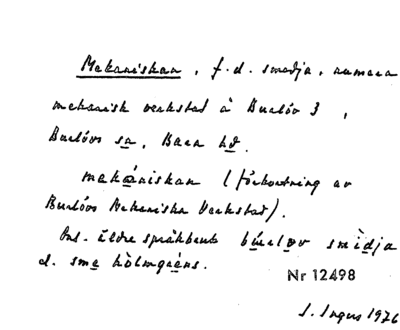 Mekaniskan, f.d. smedja, numera
mekanisk verkstad å Burlöv 3,
Burlövs sn, Bara hd.
mekániskan (förkortning av
Burlövs Mekaniska Verkstad).
Ons. äldre språkbruk smidja
Nr 12498
1976